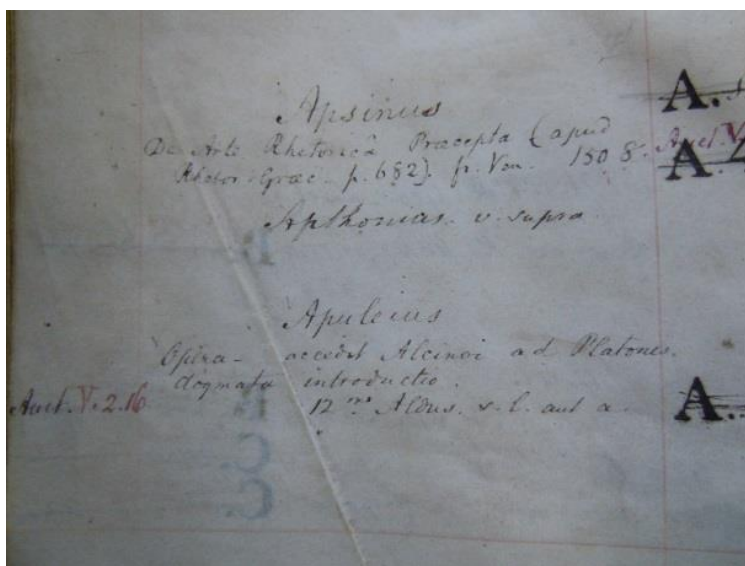 Apsinus A.
De Arte Rhetoricâ Præcepta (apud
Rhetor. Græc. p. 682). fo. Ven. 1508. Auct. V A.
Apthonias. v. supra.
Apuleius
Opera - accedit Alcinoi ad Platones.
dogmata introductio.
Auct. V. 2. 16. 12mo Aldus. s. l. aut a. A.